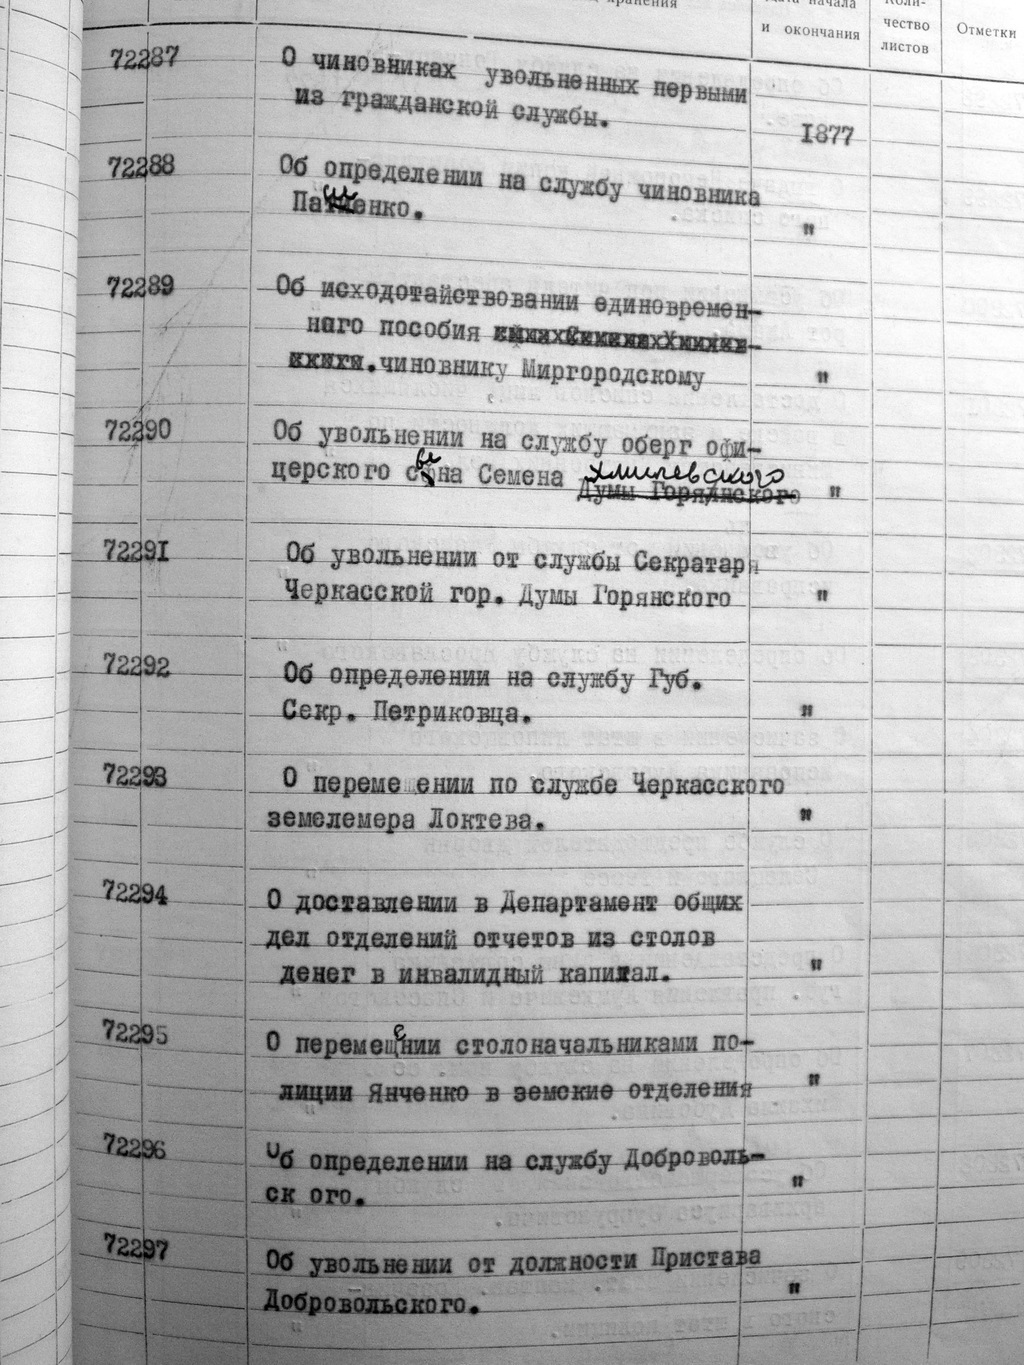 хранения
Дата начала
и окончания
Коли-
чество
листов
Отметки
72287
О чиновниках увольненных первыми
из гражданской службы.
1877
72288
Об определении на службу чиновника
Пащенко.
"
72289
Об исходотайствовании единовремен-
ного пособия
чиновнику Миргородскому
"
72290
Об увольнении на службу оберг офи-
церского сына Семена Хмилевского
Думы Горялнского "
72291
Об увольнении от службы Секратаря
Черкасской гор. Думы Горянского
"
72292
Об определении на службу Губ.
Секр. Петриковца.
"
72293
О переме ении по службе Черкасского
земелемера Локтева.
"
72294
О доставлении в Департамент общих
дел отделений отчетов из столов
денег в инвалидный капитал.
"
72295
О перемещении столоначальниками по-
лиции Янченко в земские отделения
"
72296
Об определении на службу Доброволь-
ск ого.
"
72297
Об увольнении от должности Пристава
Добровольского.
"